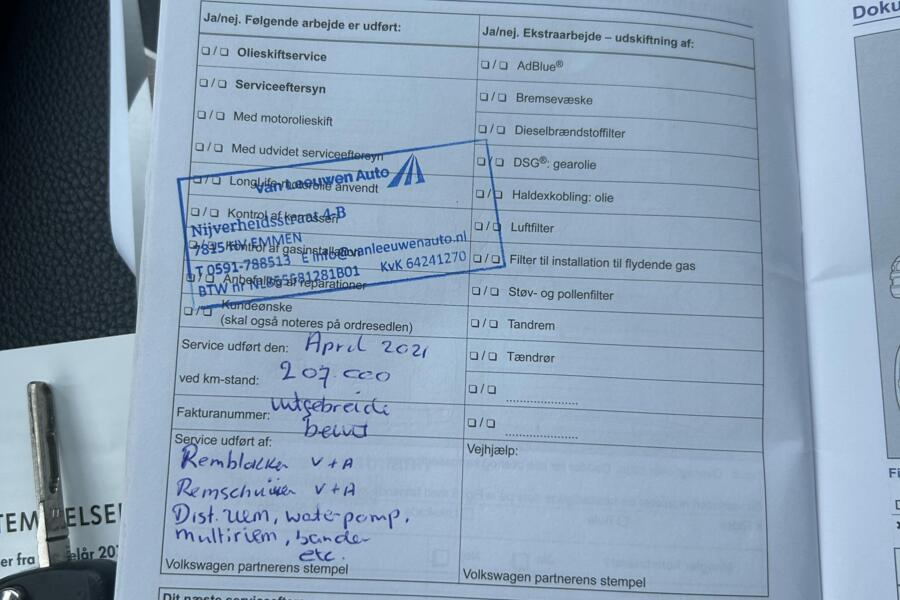 Ja/nej. Følgende arbejde er udført:
☐ / ☐ Olieskiftservice
☐ / ☐ Serviceeftersyn
☐ / ☐ Med motorolieskift
☐ / ☐ Med udvidet serviceeftersyn
☐ / ☐ LongLife-motorolie anvendt
☐ / ☐ Kontrol af karrosseri
☐ / ☐ Kontrol af gasinstallation
☐ / ☐ Anbefaling af reparationer
☐ / ☐ Kundeønske
(skal også noteres på ordresedlen)
van Leeuwen Auto
Nijverheidsstraat 4-B
7815 HV EMMEN
T 0591-788513 E info@vanleeuwenauto.nl
BTW nr NL855581281B01 KvK 64241270
Service udført den: April 2021
ved km-stand: 207.000
Fakturanummer: uitgebreide
beurt
Service udført af:
Remblokken V + A
Remschijven V + A
Dist. riem, waterpomp,
multiriem, banden
etc.
Volkswagen partnerens stempel
Ja/nej. Ekstraarbejde – udskiftning af:
☐ / ☐ AdBlue®
☐ / ☐ Bremsevæske
☐ / ☐ Dieselbrændstoffilter
☐ / ☐ DSG®: gearolie
☐ / ☐ Haldexkobling: olie
☐ / ☐ Luftfilter
☐ / ☐ Filter til installation til flydende gas
☐ / ☐ Støv- og pollenfilter
☐ / ☐ Tandrem
☐ / ☐ Tændrør
☐ / ☐ ....................
☐ / ☐ ....................
Vejhjælp:
Volkswagen partnerens stempel
Doku